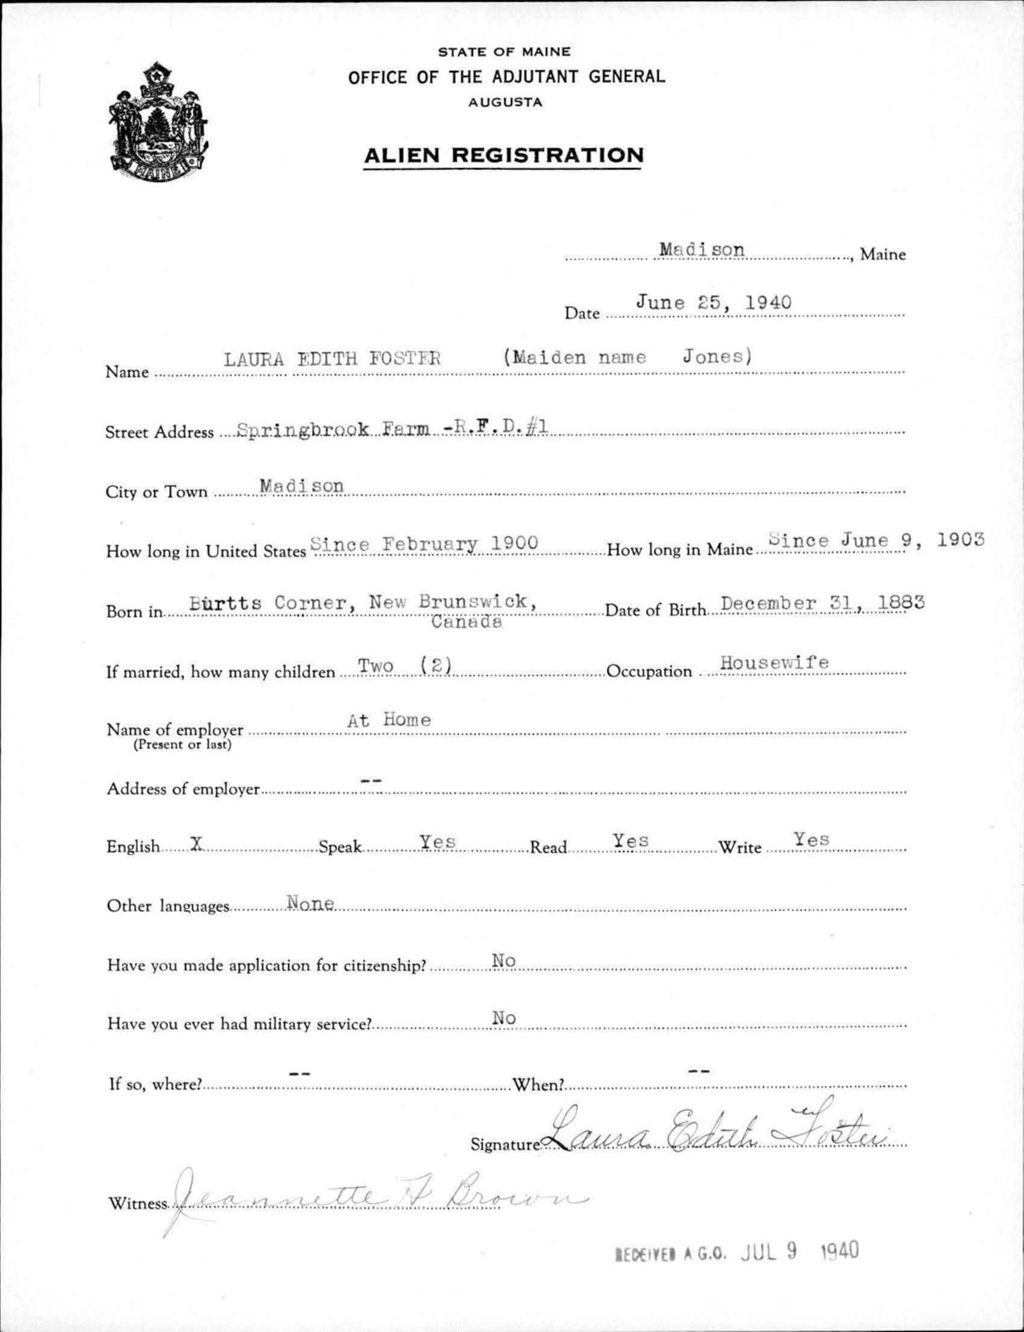 STATE OF MAINE
OFFICE OF THE ADJUTANT GENERAL
AUGUSTA
ALIEN REGISTRATION
MAINE
Madison, Maine
Date June 25, 1940
Name LAURA EDITH FOSTER (Maiden name Jones)
Street Address Springbrook Farm -R.F.D.#1
City or Town Madison
How long in United States Since February 1900 How long in Maine Since June 9, 1903
Born in Burtts Corner, New Brunswick, Date of Birth December 31, 1883
Canada
If married, how many children Two (2) Occupation Housewife
Name of employer At Home
(Present or last)
Address of employer --
English X Speak Yes Read Yes Write Yes
Other languages None
Have you made application for citizenship? No
Have you ever had military service? No
If so, where? -- When? --
Signature Laura Edith Foster
Witness Jeannette H Brown
RECEIVED A.G.O. JUL 9 1940